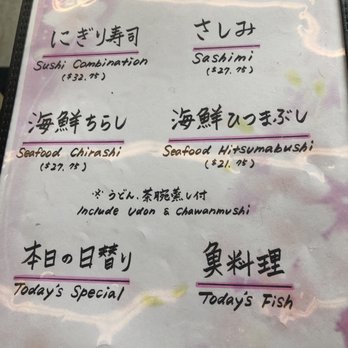 にぎり寿司
Sushi Combination
($32.75)
さしみ
Sashimi
($27.75)
海鮮ちらし
Seafood Chirashi
($27.75)
海鮮ひつまぶし
Seafood Hitsumabushi
($21.75)
※うどん、茶碗蒸し付
Include Udon & Chawanmushi
本日の日替り
Today's Special
魚料理
Today's Fish